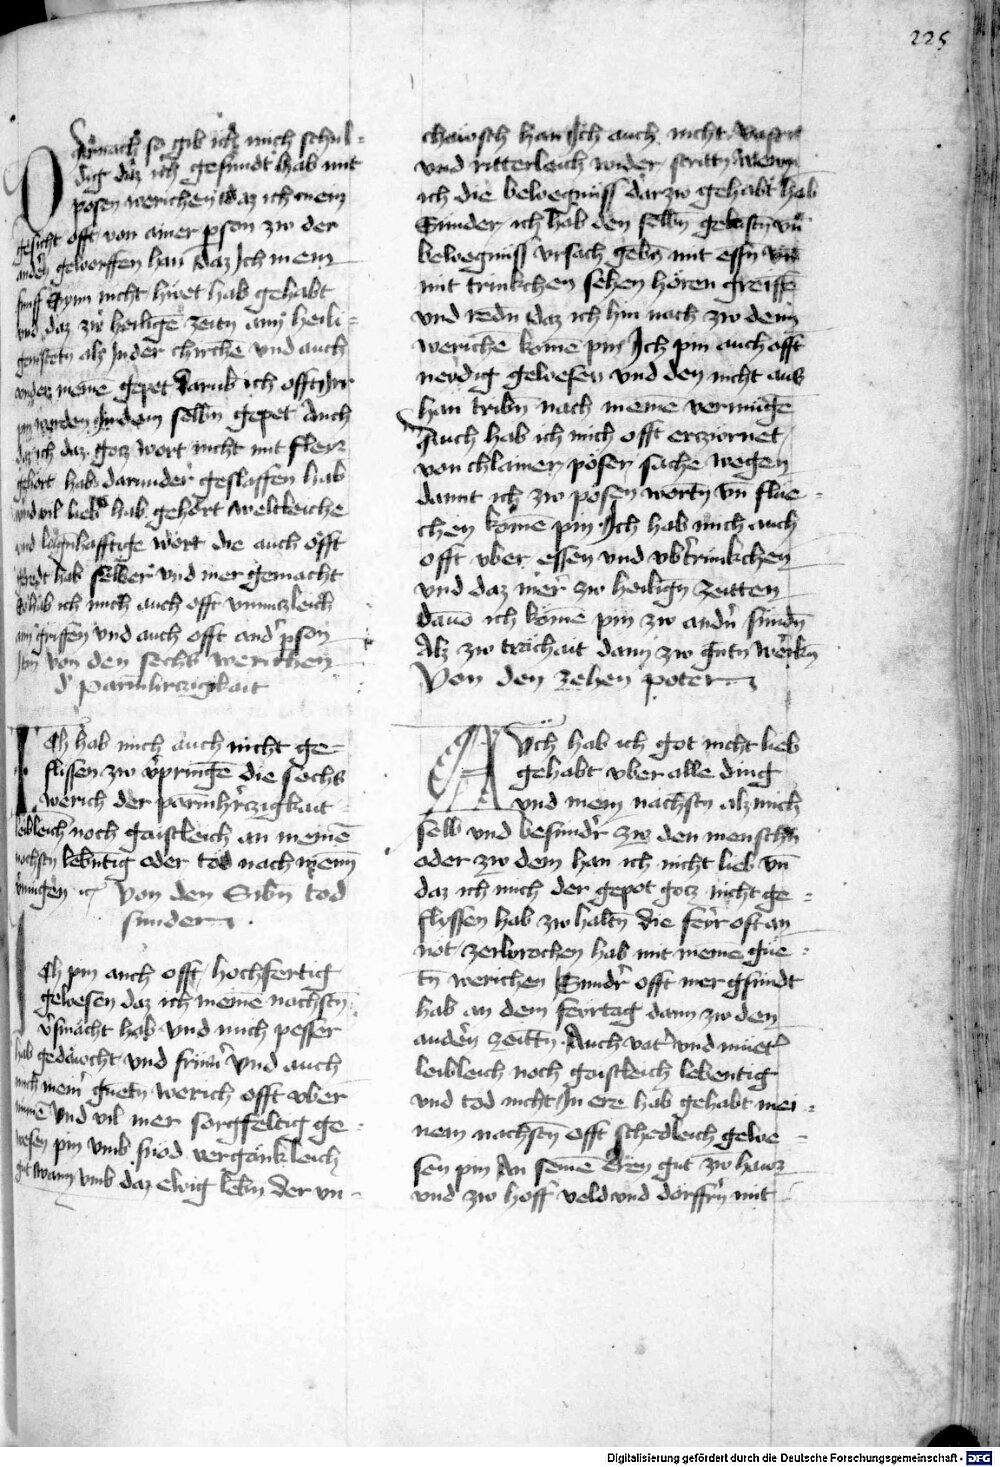 225
Darnach so gib ich mich schul-
dig daz ich gesundt hab mit
posen werichen daz ich mein
gesicht offt von ainer pson zw der
andn̄ geworffen han daz Ich mein
funff Synn nicht hüet hab gehabt
vnd daz zw heiligē zeitn̄ am heili-
gisten als Jn der chirche vnd auch
vnder meinē gepet Darub ich offt Jrr
pin worden Jn dem selbn̄ gepet Auch
daz ich daz gotz wort nicht mit fleyz
gehört hab darunder geslaffen hab
vnd vil lieber hab gehört weltleiche
vnd lugnhafftige wort die auch offt
geredt hab selber vnd mer gemacht
So hab ich mich auch offt vnnuczleich
an griffen vnd auch offt andr̄ pson
Jtm̄ Von den sechs werichen
d' parmhrczigkait
Ich hab mich auch nicht ge-
flissen zw v̄pringē die sechs
werich der parmhr̄czigkait
leibleich noch gaistleich an meinē
nachstn̄ lebn̄tig oder tod nach meim
v̄mugen ꝛc Von den Sibn̄ tod
sunden
Ich pm auch offt hochfertig
gewesen daz ich meinē nachstn̄
v̄smächt hab vnd mich pesser
hab gedäucht vnd frümr̄ vnd auch
mich meinr̄ guetn̄ werich offt vber
nümē vnd vil mer sorgfeltig ge-
wesen pm vmb snöd vergänkleich
gut wann vmb daz ewig lebn̄ der vn-
chäwsch han Ich auch nicht vast
vnd ritterleich wider stritn̄ Wenn
ich die bewegnüss darzw gehabt hab
Sunder ich hab den selbn̄ gebrestn̄ vn̄
bewegnüss vrsach gebn̄ mit essn̄ vnd
mit trinkchen sehen hören greiffē
vnd redn̄ daz ich hin nach zw dem
weriche komē pin Ich pin auch offt
neydig gewesen vnd den nicht aus
han tribn̄ nach meinē vermugē
Auch hab ich mich offt erczürnet
von chlainer pöser sache wegen
damit ich zw posen wortn̄ vn̄ flue-
chen komē pin Ich hab mich auch
offt vber essen vnd vbr̄trinkchen
vnd daz mer zw heilign̄ zeitten
dauō ich komē pin zw andn̄ sundn̄
Alz zw trächait dann zw gutn̄ werkn̄
Von den zehen poten
Auch hab ich got nicht lieb
gehabt vber alle ding
vnd mein nachstn̄ alz mich
selb vnd besundr̄ zw den menschn̄
oder zw dem han ich nicht lieb vn̄
daz ich mich der gepot gotz nicht ge-
flyssen hab zw haltn̄ die feyr oft an
not zerbrochen hab mit meinē gue-
tn̄ werichen Sundr̄ offt mer gsundt
hab an dem feyrtag dann zw den
anden̄ zeittn̄ Auch vatr̄ vnd muetr̄
leibleich noch gaistleich lebentig
vnd tod nicht Jn ere hab gehabt mei-
nem nachstn̄ offt schedleich gewe-
sen pin An seinē eren gut zw haws
vnd zw hoff veld vnd dorffrn̄ mit
Digitalisierung gefördert durch die Deutsche Forschungsgemeinschaft - DFG